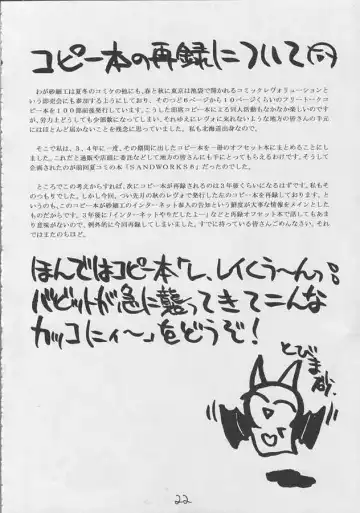 コピー本の再録について
わが砂細工は夏冬のコミケの他にも、春と秋に東京は池袋で開かれるコミックレヴォリューションと
いう即売会にも参加するようにしており、そのつど6ページから10ページくらいのフリートークコ
ピー本を100部前後発行しています。こうした即席コピー本も同人活動もなかなか楽しいのです
が、労力よどうしても少部数になってしまい、それゆえにレヴォに来れないような地方の皆さんの手元
にはほとんど届かないことを残念に思っていました。私も北海道出身なので。
そこで私は、3、4年に一度、その期間に出したコピー本を一冊のオフセット本にまとめることにし
ました。これだと通販や店頭に委託などして地方の皆さんにも手にとってもらえるわけです。そうして
企画されたのが前回夏コミの本「SANDWORKS6」だったのでした。
ところでこの考えからすれば、次にコピー本が再録されるのは3年後くらいになるはずです。私もそ
のつもりでした。しかし今回、つい先月の秋のレヴォで発行した左のコピー本を再録しております。と
いうのも、このコピー本が砂細工のインターネット参入の告知という鮮度が大事な情報をメインとした
ものだからです。3年後に「インターネットやりだしたよー」などと再録オフセット本で話してもあま
り意味がないので、例外的に今回再録してしまいました。すでに持っている皆さんごめんなさい。それ
ではまたのちほど。
ほんではコピー本「し、しくう〜んっ。
バビットが急に襲ってきてこんな
カッコにィ〜」をどうぞ!
とびます。
22